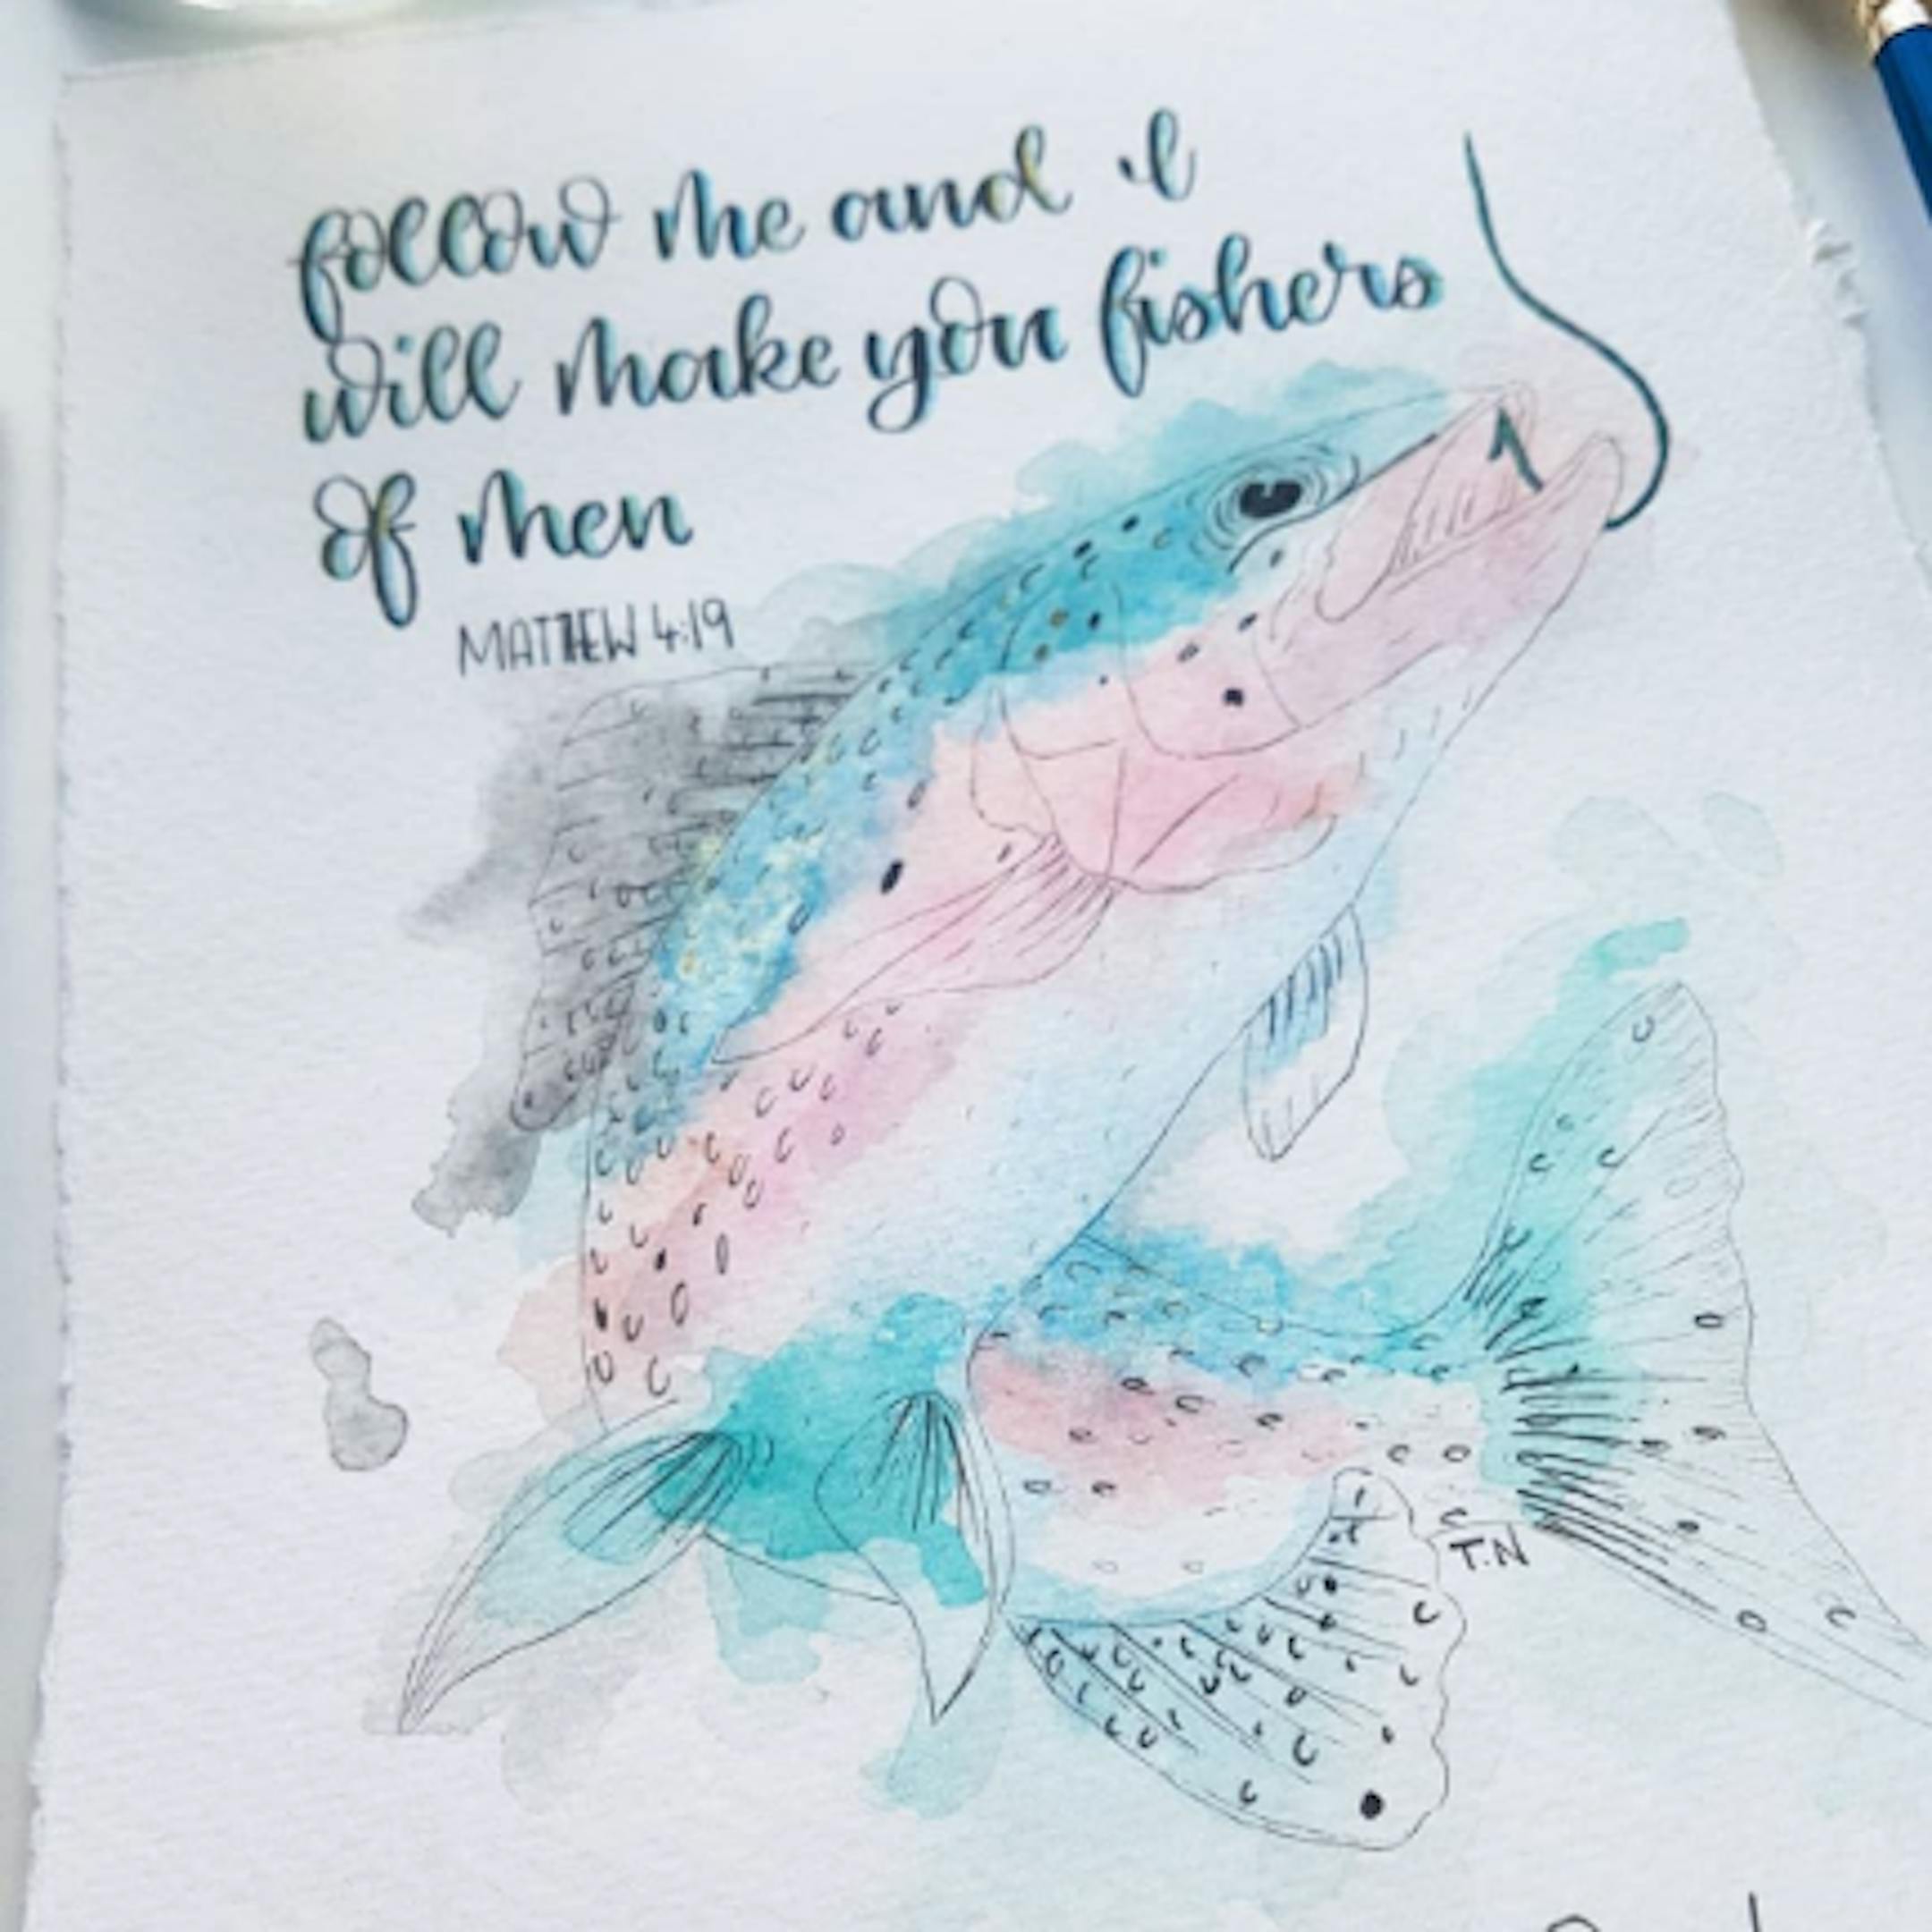 follow me and i
will make you fishers
of men
MATTHEW 4:19
T.N